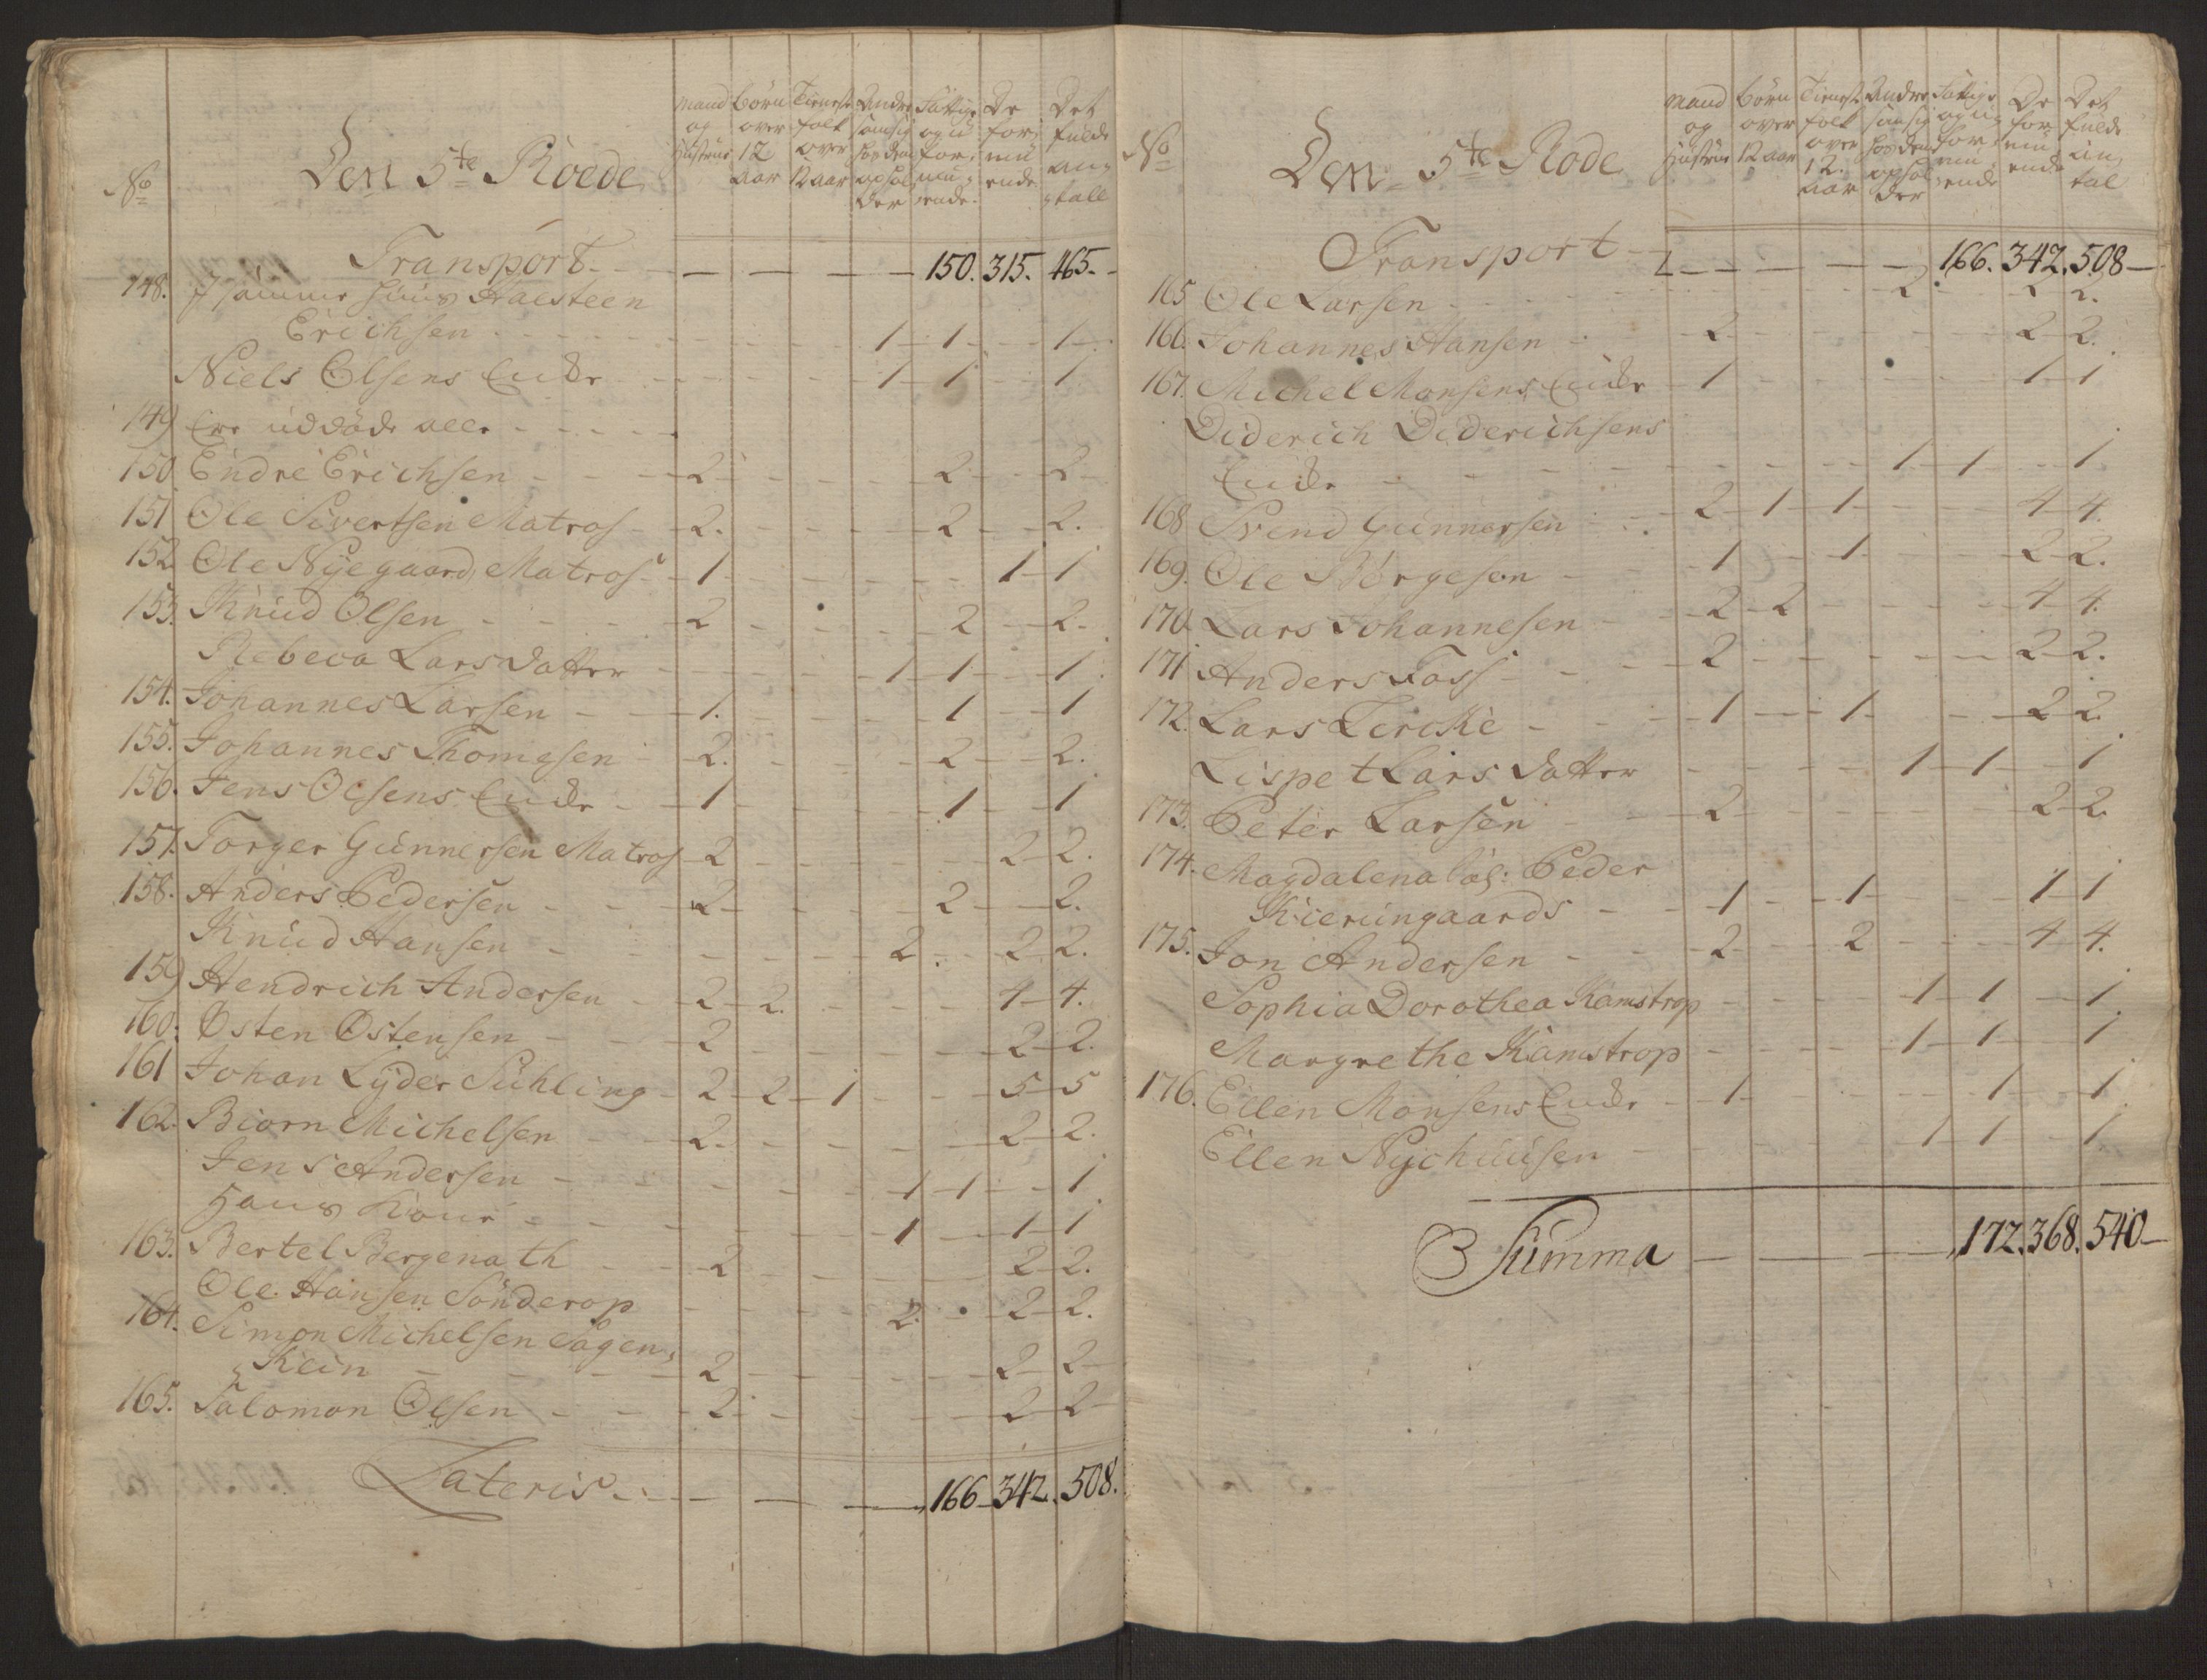 No
Den 5te Roede
Mand og Hustrue
börn over 12 aar
Tieneste folk over 12 aar
Andre som sig hos dem opholder
Fattige og uformuende
De formuende
Det fulde antall
Transport - - - - 150. 315. 465.
148. I samme Huus Halsteen
Erichsen - - - 1 - 1 - - 1
Niels Olsens Encke - - - 1 - 1 - 1
149 Ere uddöde alle - - - -
150. Endre Erichsen - - 2 - - - 2 - - 2
151 Ole Sivertsen Matros - 2. - - - 2 - - 2.
152 Ole Nyegaard, Matros - 1 - - - - 1 - 1
153. Knud Olsen - - 2 - - - 2 - - 2
Rebeca Larsdatter - - - 1 - 1 - - 1
154. Johannes Larsen - - 1. - - - 1 - - 1
155. Johannes Thomesen - 2. - - - 2 - - 2.
156. Jens Olsens Encke - - 1 - - - 1 - - 1
157. Torger Gunnersen Matros 2 - - - - 2 - 2.
158. Anders Pedersen - - 2 - - - 2 - - 2.
Knud Hansen - - - - 2. - 2. 2.
159 Hendrich Andersen - 2 - 2. - - - 4 - 4.
160. Osten Ostensen - - 2 - - - - 2 - 2.
161 Johan Lyder Sühling - 2 - 2 - 1 - - 5 - 5
162. Biorn Michelsen - - 2. - - - - 2 - 2.
Jens Andersen - - - - 1 - 1 - - 1
Hans - - - - 1 - 1 - 1
163. Bertel Bergenath - - 2 - - - - 2 - 2.
Ole Hansen Sönderop - - - - 2. - 2 - 2.
164. Simon Michelsen Sagen,
Klein - - - 2 - - - - 2 - 2
165. Salomon Olsen - - - 2 - - - - 2 - 2
Lateris - - - - 166 - 342. 508.
No
Den 5te Rode
Mand og Hustrue
börn over 12 aar
Tieneste folk over 12. aar
Andre som sig hos dem opholder
Fattige og uformuende
De formuende
Det fulde antal
Transport - - - - - 166. 342. 508 -
165 Ole Larsen - - - - 2. - 2 2.
166. Johannes Hansen - - 2 - - - - 2 - 2.
167. Michel Monsens Encke - 1 - - - - 1 - 1
Diderich Diderichsens
Encke - - - - - 1 - 1 - - 1
168 Svend Gunnersen - - 2 - 1 - 1 - - - 4 - 4.
169. Ole Börgesen - - 1 - - 1 - - - 2 - 2.
170. Lars Johannesen - - 2 - 2 - - - - 4 - 4.
171 Anders Foss - - 2 - - - - - 2 - 2.
172. Lars Lercke - - 1 - - 1 - - 2 2.
Lispet Larsdatter - - - - 1 - 1 - - 1
173. Peter Larsen - - 2 - - - - - 2 - 2.
174. Magdalena Sal: Peder
Kierumgaards - - 1 - - 1 - - - 1 - 1
175. Jon Andersen - - 2 - - 2 - - - 4 - 4.
Sophia Dorothea Kamstrop - - - - 1 - 1 - - 1
Margrethe Kamstrop - - - - 1 - 1 - - 1
176. Ellen Monsens Encke - - 1 - - - - 1 - - 1
Ellen Nychuusen - - - - 1 - 1 - - 1
Summa - - - - 172. 368. 540 -